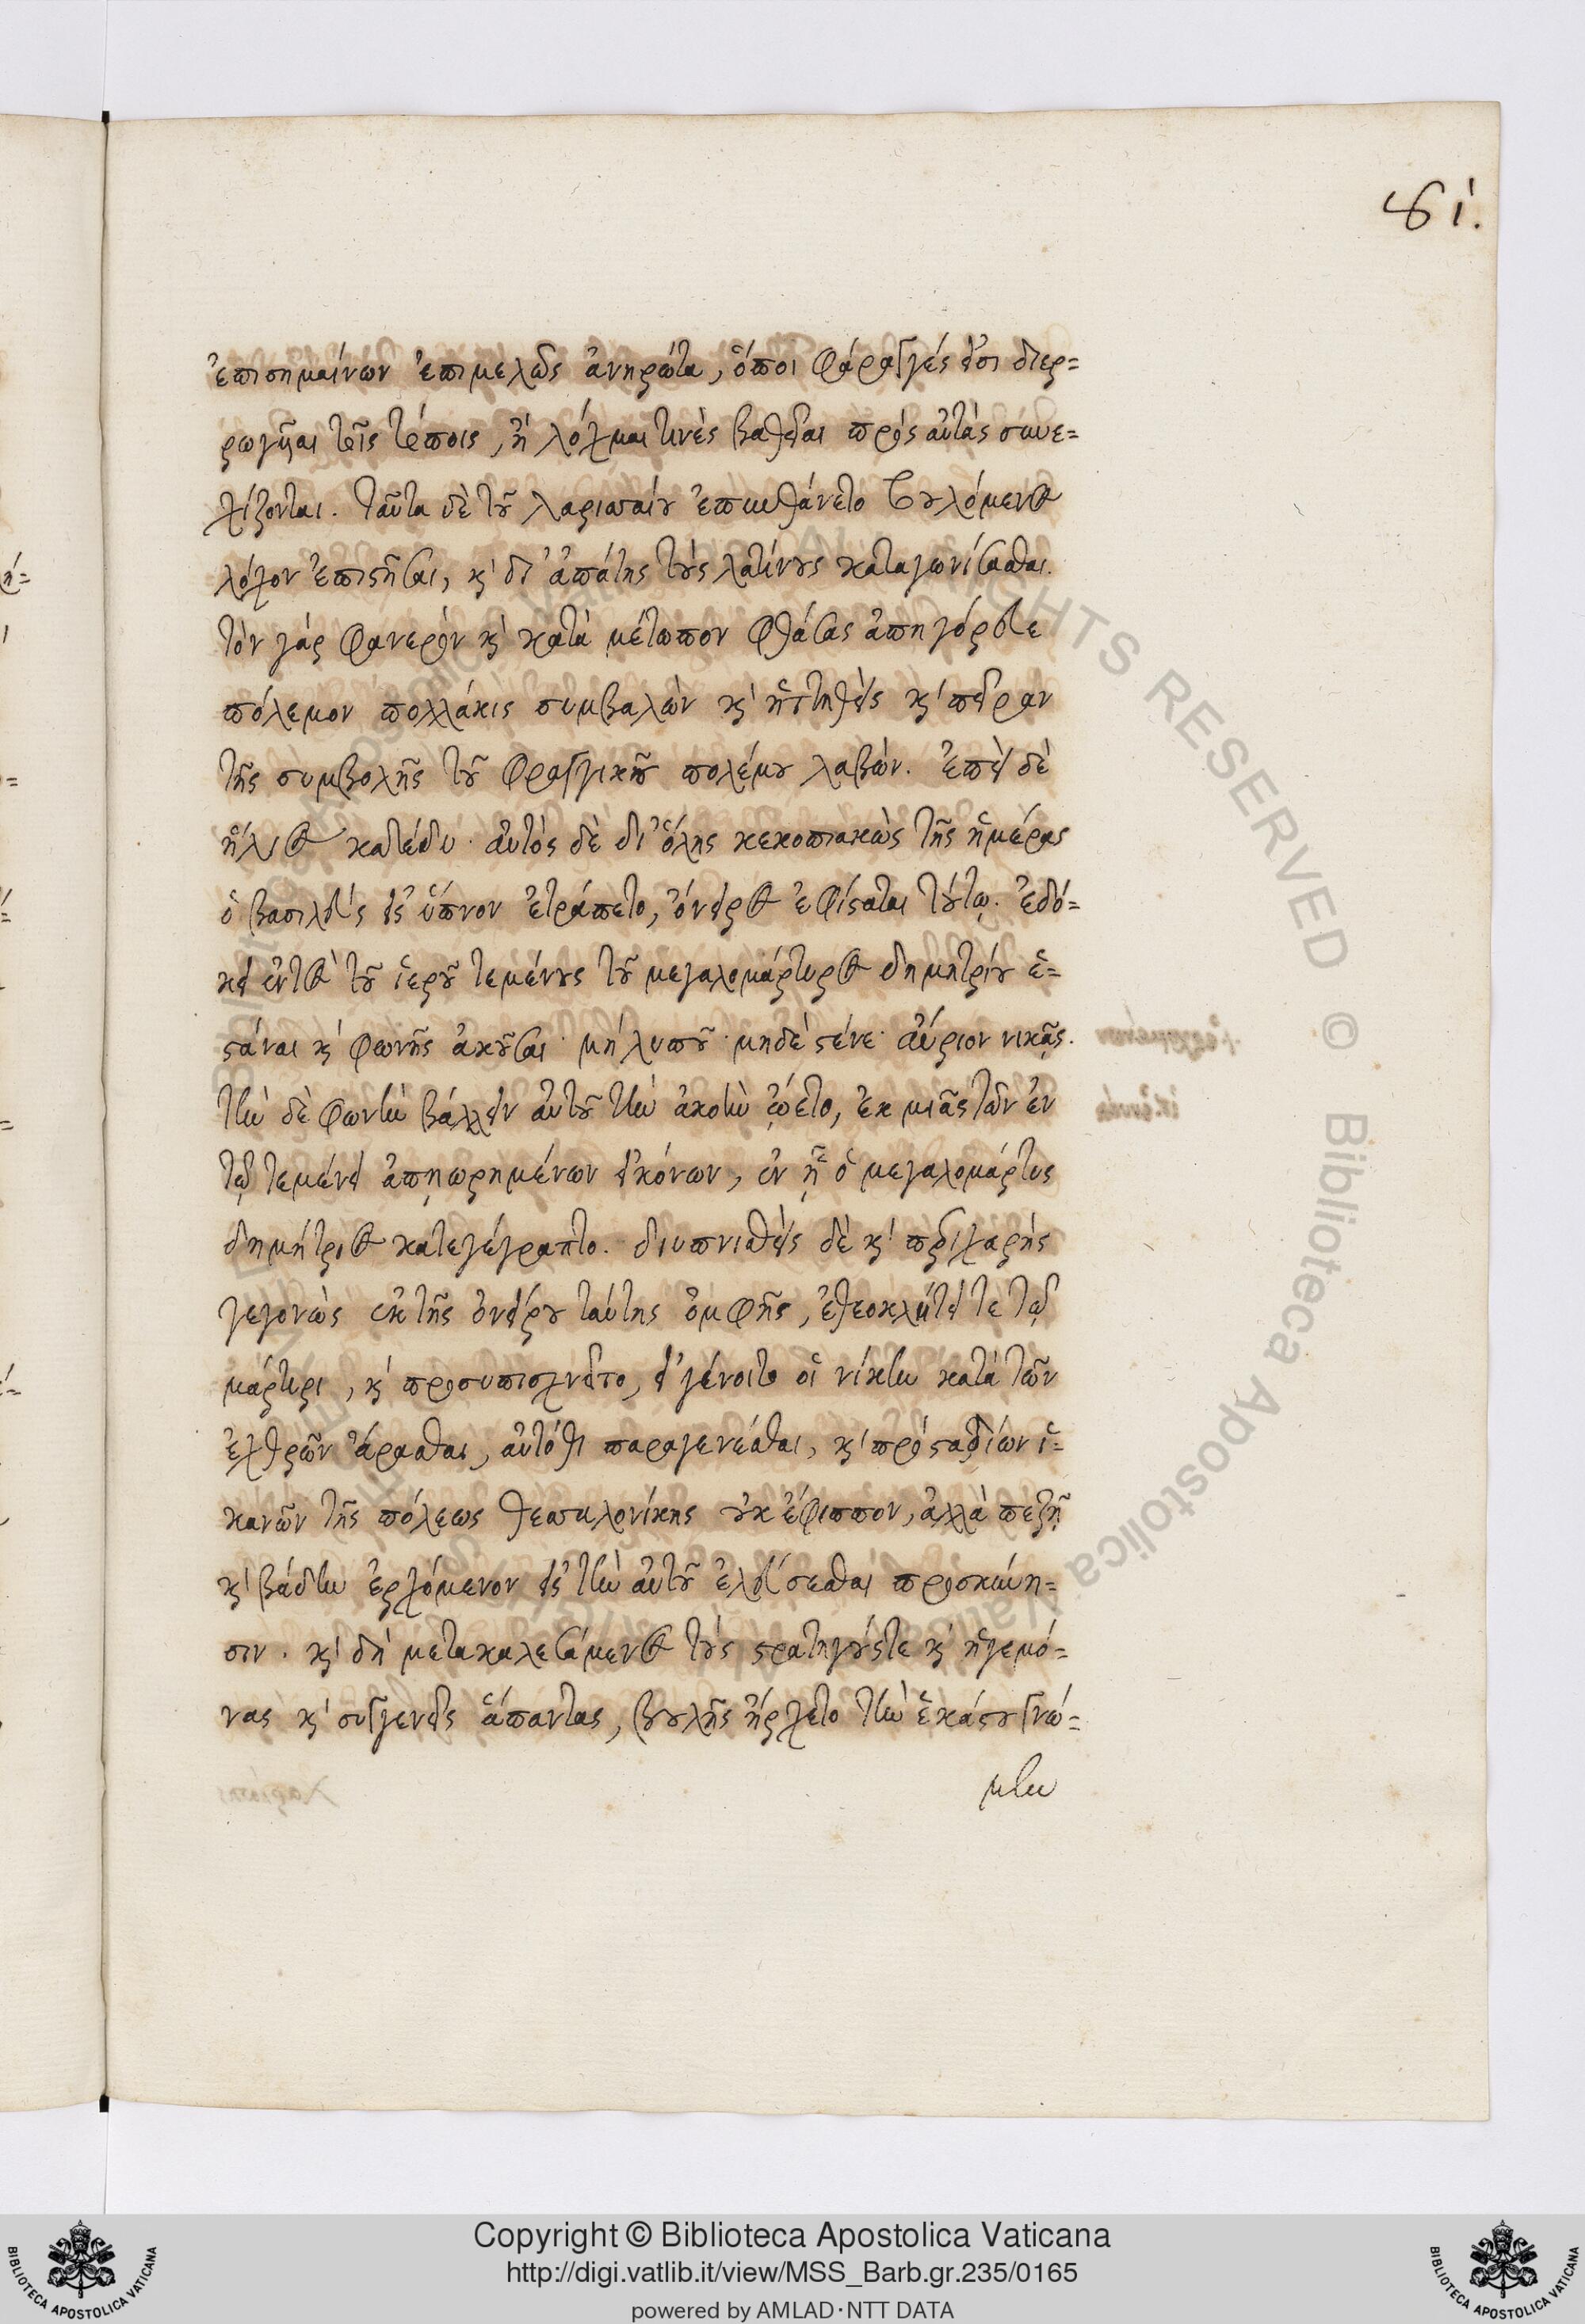 81.
ἐπισημαίνων ἐπιμελῶς ἀνηρώτα, ὅποι φάραγγές εἰσι διερ=
ρωγῆαι τοῖς τόποις, ἢ λόχμαι τινὲς βαθεῖαι πρὸς αὐτὰς συνε=
χίζονται. ταῦτα δὲ τοῦ λαρισσαίου ἐπυνθάνετο βουλόμενος
λόχον ἐπιστῆσαι, καὶ δι' ἀπάτης τοὺς λατίνους καταγωνίσασθαι.
τὸν γὰρ φανερὸν καὶ κατὰ μέτωπον φθάσας ἀπηγόρευε
πόλεμον πολλάκις συμβαλὼν καὶ ἡττηθεὶς καὶ πεῖραν
τῆς συμβολῆς τοῦ φραγγικοῦ πολέμου λαβών. ἐπεὶ δὲ
ἥλιος κατέδυ· αὐτὸς δὲ δι' ὅλης κεκοπιακὼς τῆς ἡμέρας
ὁ βασιλεὺς εἰς ὕπνον ἐτράπετο, ὄνειρος ἐφίσταται τούτω. ἐδό=
κει ἐντὸς τοῦ ἱεροῦ τεμένους τοῦ μεγαλομάρτυρος δημητρίου ἑ=
στάναι καὶ φωνῆς ἀκοῦσαι· μὴ λυποῦ· μηδὲ στένε· αὔριον νικᾷς.
τὴν δὲ φωνὴν βάλλειν αὐτοῦ τὴν ἀκοὴν ᾤετο, ἐκ μιᾶς τῶν ἐν
τῷ τεμένει ἀπῃωρημένων εἰκόνων, ἐν ᾗ ὁ μεγαλομάρτυς
δημήτριος κατεγέγραπτο. διυπνισθεὶς δὲ καὶ περιχαρὴς
γεγονὼς ἐκ τῆς ὀνείρου ταύτης ὀμφῆς, ἐθεοκλύτει τε τῷ
μάρτυρι, καὶ προσυπισχνεῖτο, εἰ γένοιτο οἱ νίκην κατὰ τῶν
ἐχθρῶν ἄρασθαι, αὐτόθι παραγενέσθαι, καὶ πρὸ σταδίων ἱ=
κανῶν τῆς πόλεως θεσσαλονίκης οὐκ ἔφιππον, ἀλλὰ πεζῇ
καὶ βάδην ἐρχόμενον εἰς τὴν αὐτοῦ ἐλεύσεσθαι προσκύνη=
σιν. καὶ δὴ μετακαλεσάμενος τοὺς στρατηγούς τε καὶ ἡγεμό=
νας καὶ συγγενεῖς ἅπαντας, βουλῆς ἤρχετο τὴν ἑκάστου γνώ=
μην
Copyright © Biblioteca Apostolica Vaticana
http://digi.vatlib.it/view/MSS_Barb.gr.235/0165
powered by AMLAD·NTT DATA